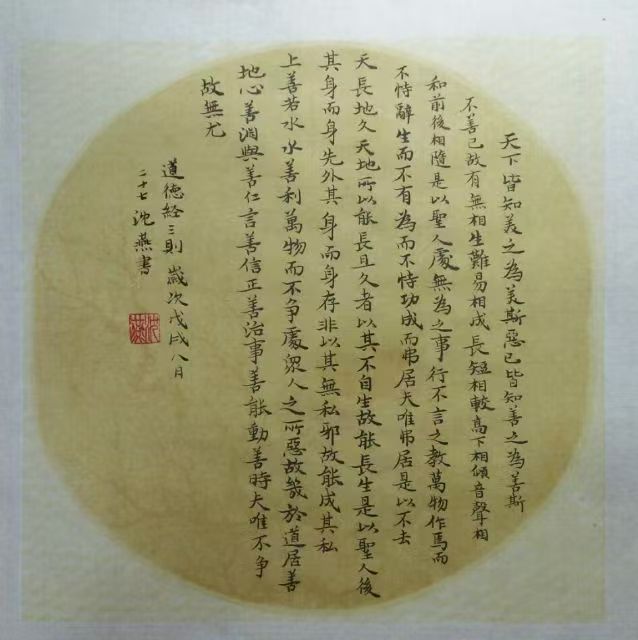 天下皆知美之為美斯惡已皆知善之為善斯
不善已故有無相生難易相成長短相較高下相傾音聲相
和前後相隨是以聖人處無為之事行不言之教萬物作焉而
不恃辭生而不有為而不恃功成而弗居夫唯弗居是以不去
天長地久天地所以能長且久者以其不自生故能長生是以聖人後
其身而身先外其身而身存非以其無私邪故能成其私
上善若水水善利萬物而不争處眾人之所惡故幾於道居善
地心善淵與善仁言善信正善治事善能動善時夫唯不争
故無尤
道德经三則 歲次戊戌八月
二十七沈燕書
沈燕